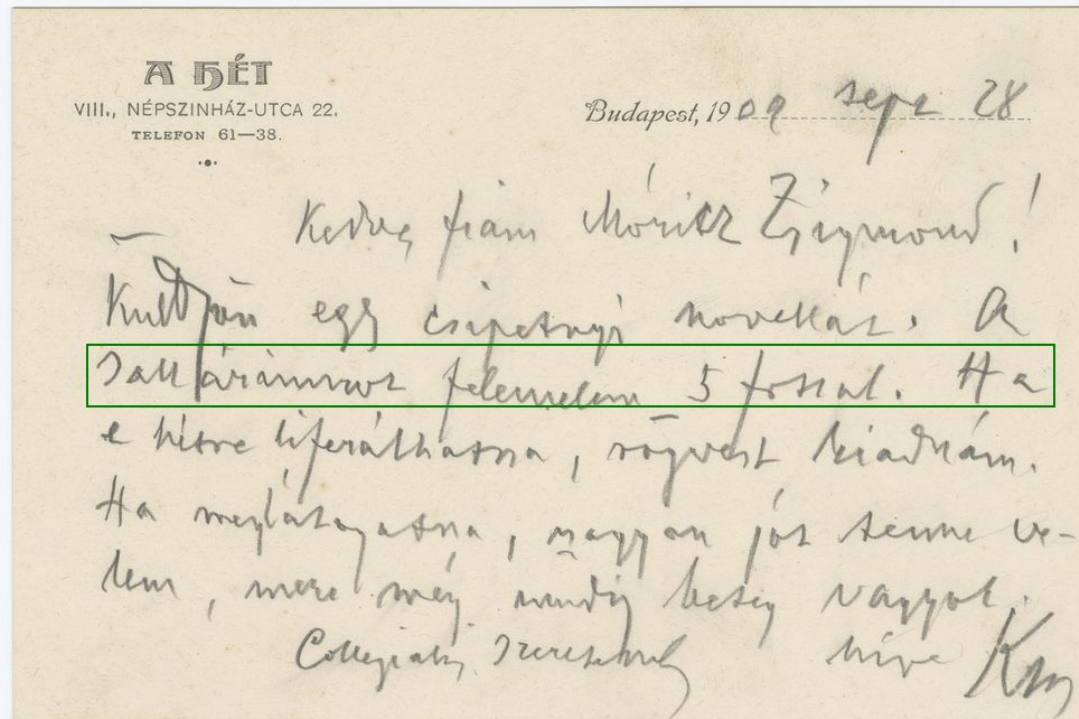 A HÉT
VIII., NÉPSZINHÁZ-UTCA 22.
TELEFON 61—38.
Budapest, 1909 sept 28
Kedves fiam Móricz Zsigmond!
Küldjön egy csipetnyi novellát. A
felemelem 5 frttal. Ha
e hétre liferálhatna, rögvest kiadnám.
Ha meglátogatna, nagyon jót tenne ve-
lem, mert még mindig beteg vagyok.
Collegialis szeretettel híve